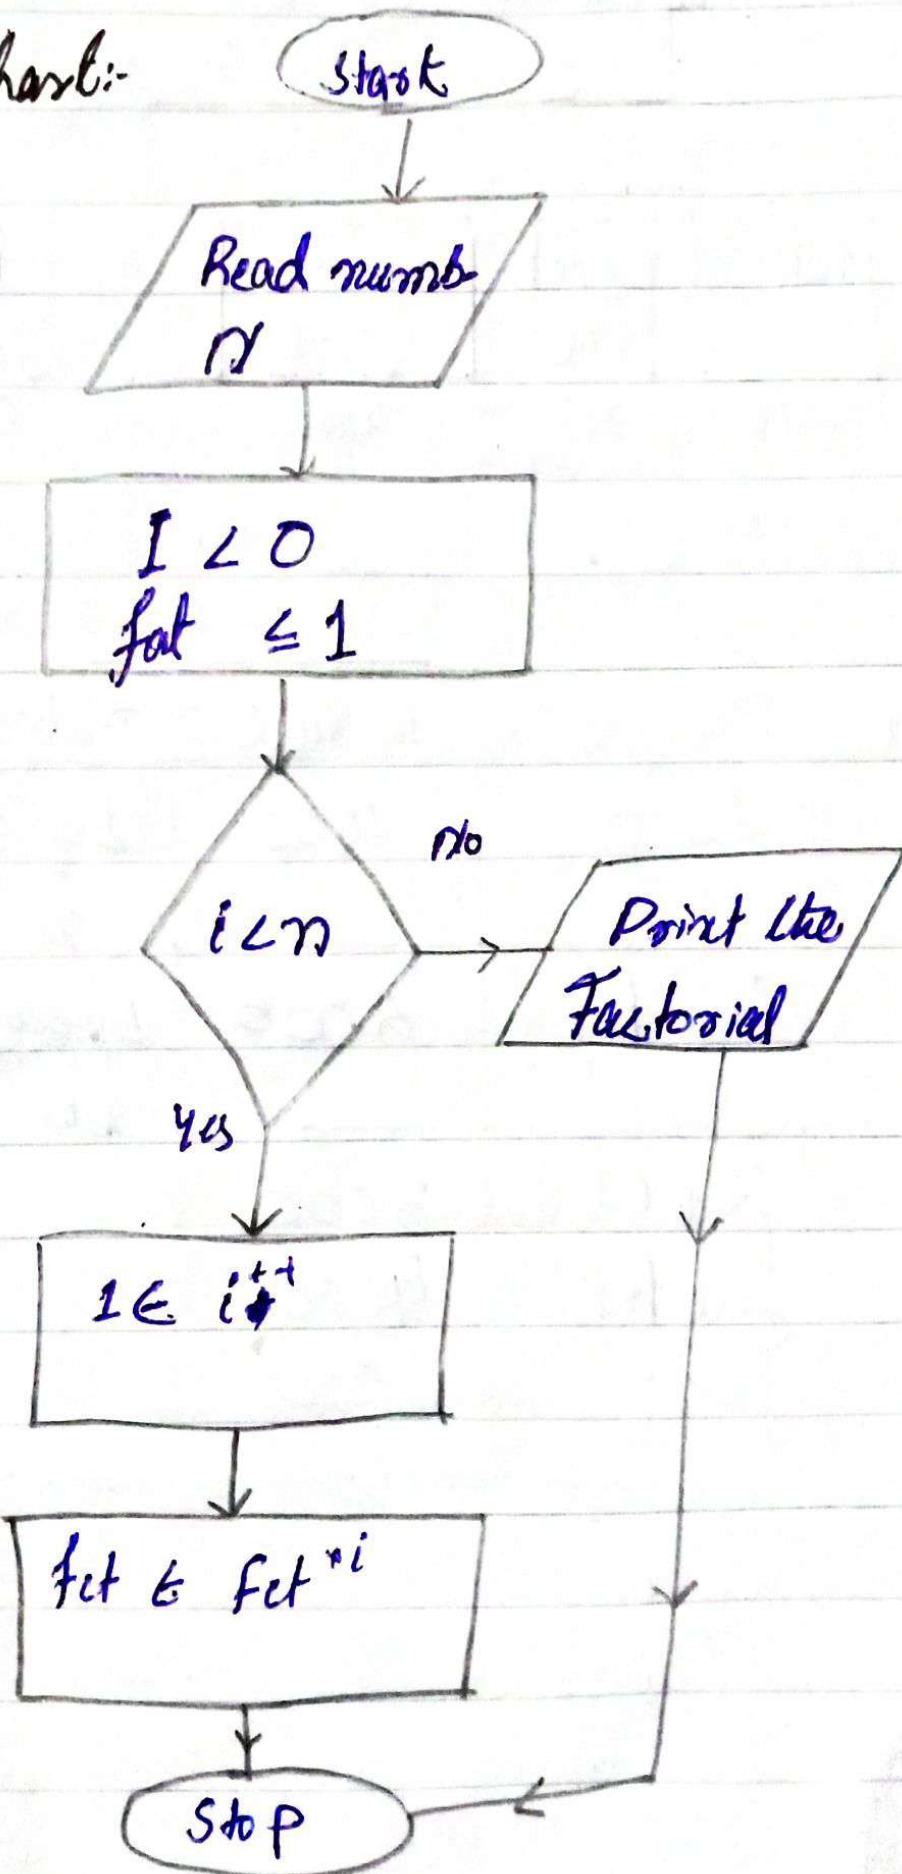 hart:-
Start
Read numb
N
I < 0
fat ≤ 1
i < n
No
Print the
Factorial
Yes
1 ∈ i++
fct ∈ fct *i
Stop